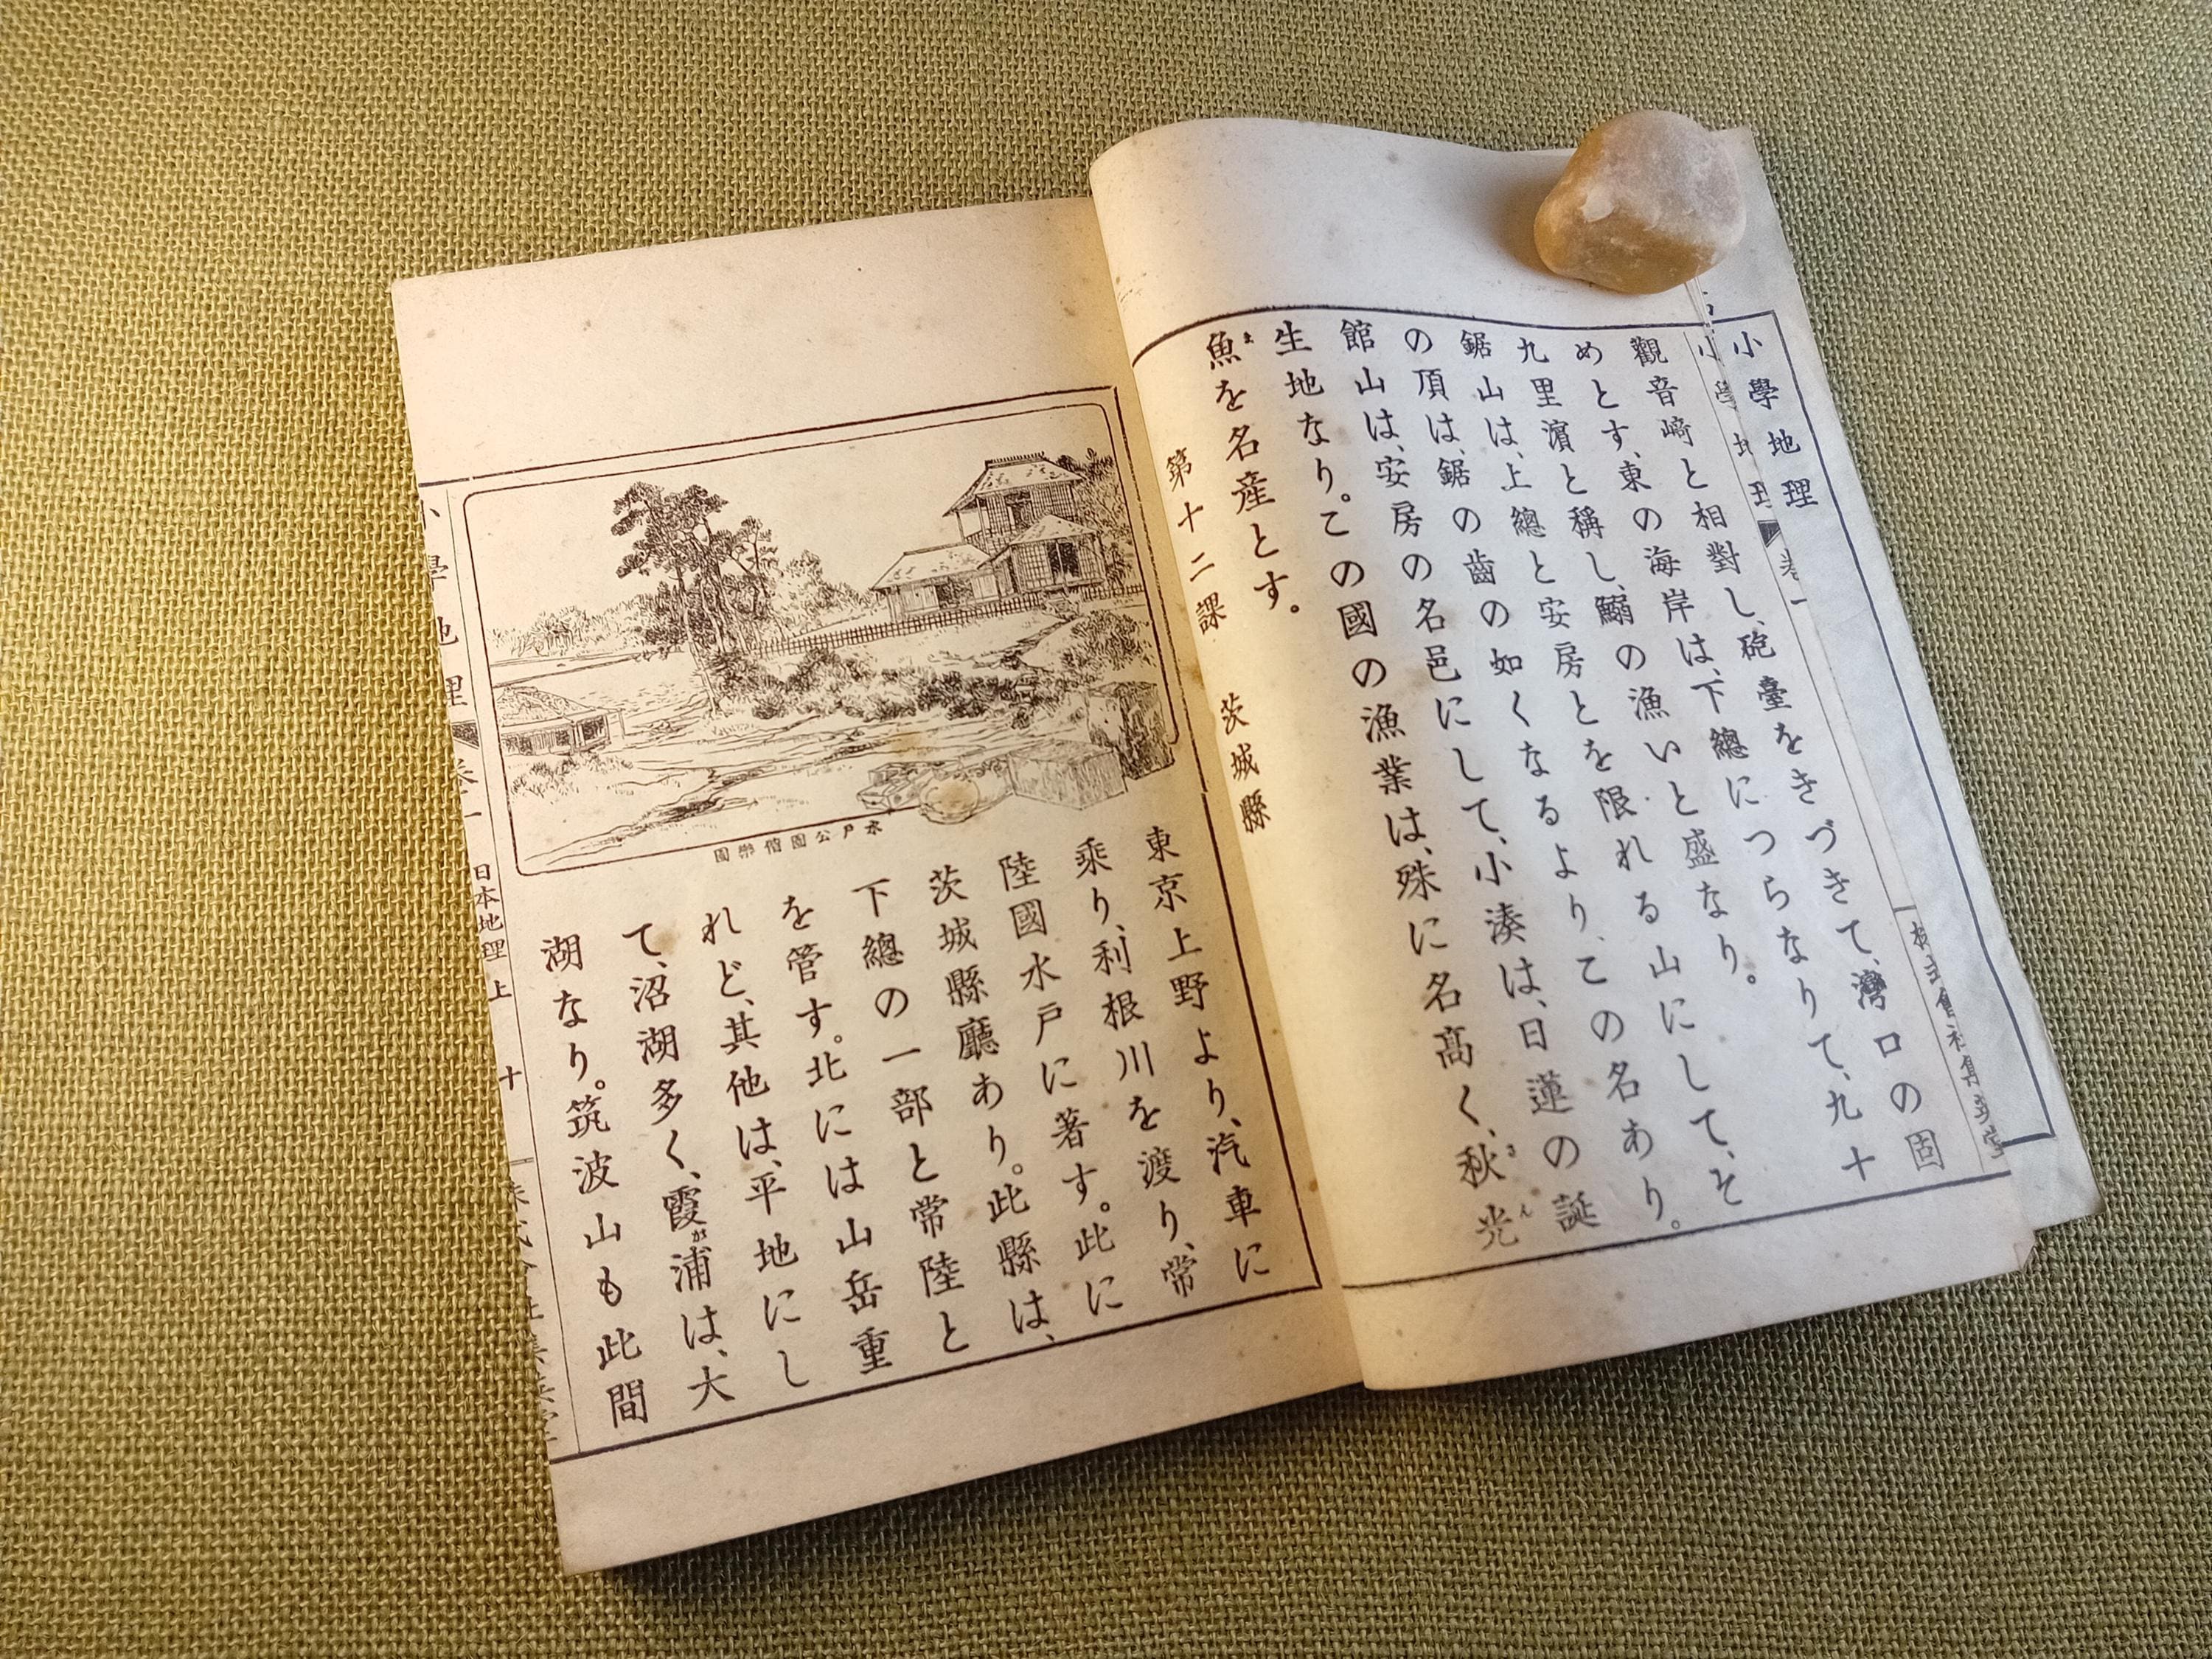 小學地理
小學地理 卷一
觀音崎と相對し、砲臺をきづきて、灣口の固
めとす、東の海岸は、下總につらなりて、九十
九里濱と稱し、鰯の漁いと盛なり。
鋸山は、上總と安房とを限れる山にして、そ
の頂は、鋸の齒の如くなるより、この名あり。
館山は、安房の名邑にして、小湊は、日蓮の誕
生地なり。この國の漁業は、殊に名高く、秋光
さん
魚を名産とす。
ま
第十二課 茨城縣
東京上野より、汽車に
乘り、利根川を渡り、常
陸國水戸に著す。此に
茨城縣廳あり。此縣は、
下總の一部と常陸と
を管す。北には山岳重
れど、其他は、平地にし
て、沼湖多く、霞浦は、大
が
湖なり。筑波山も此間
水戸公園偕樂園
小學地理 卷一 日本地理上 十